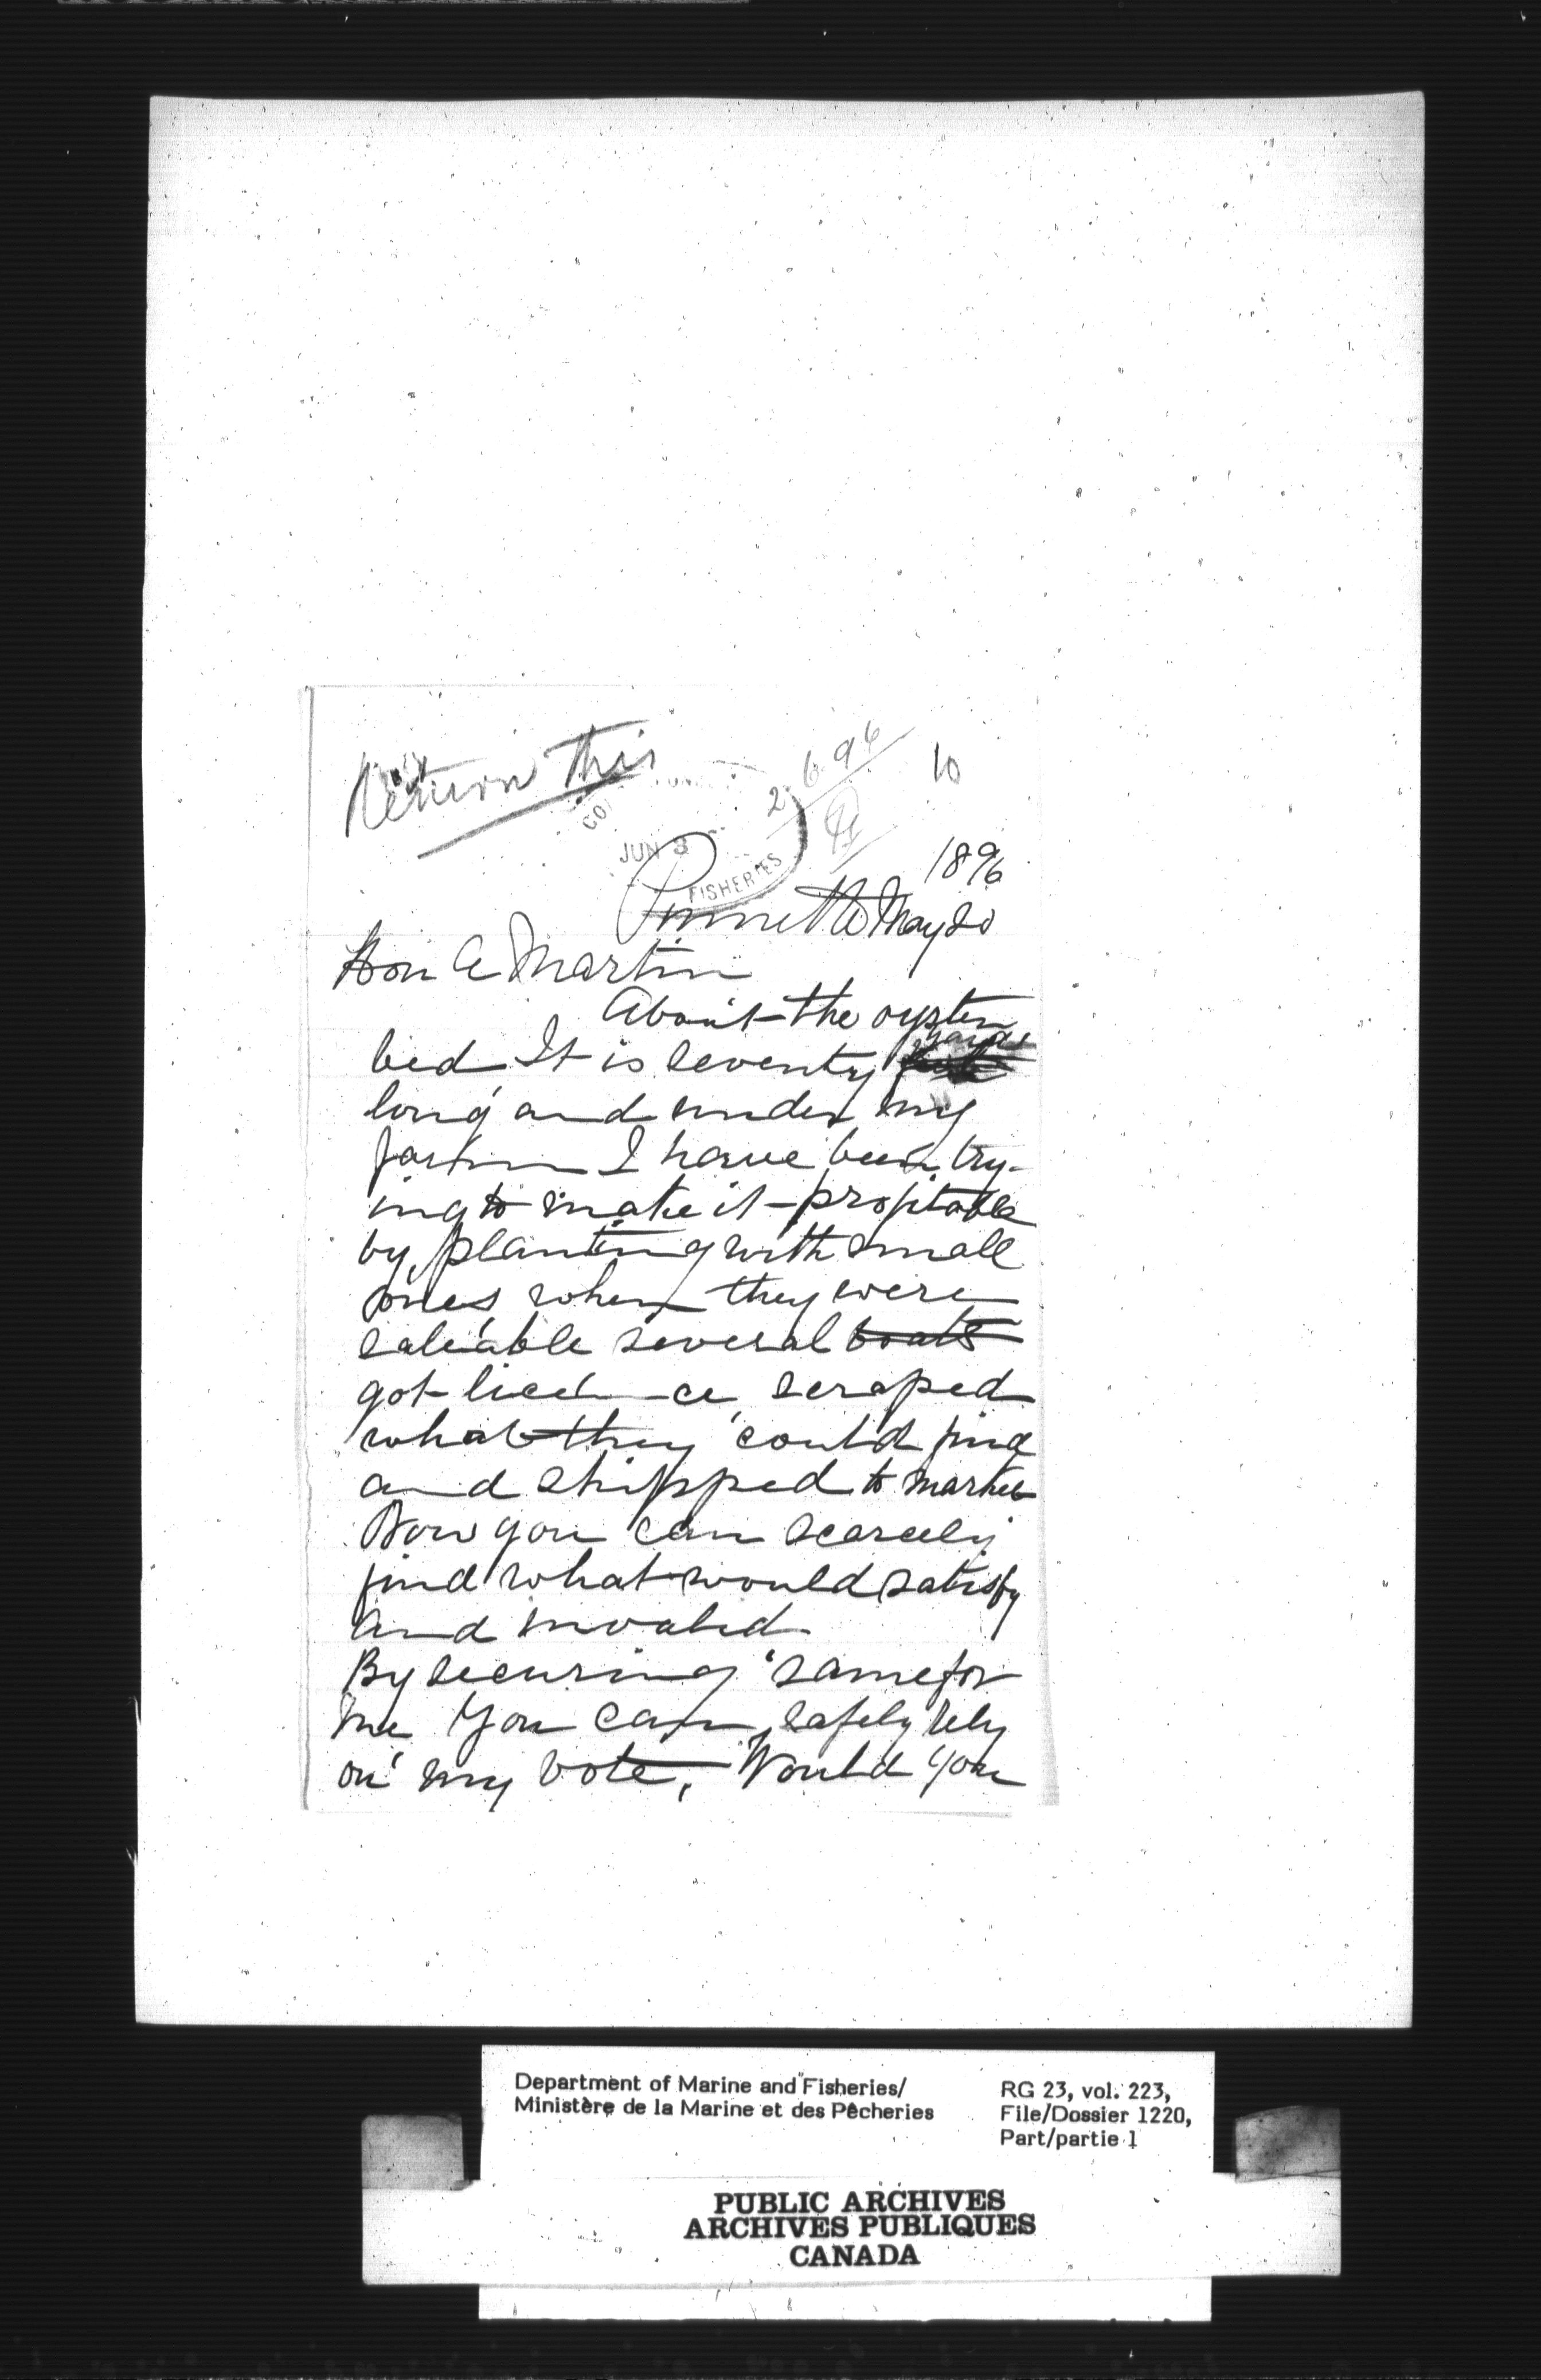 Return this
2.6.96
10
JUN 3
FISHERIES
1896
Pinnette May 20
Hon A Martin
About the oyster
bed It is seventy yards
long and under my
farm I have been try-
ing to make it profitable
by planting with small
ones when they were
saleable several boats
got licence scraped
what they could find
and shipped to market
Now you can scarcely
find what would satisfy
and invalid
By securing same for
me You can safely rely
on my vote, Would you
Department of Marine and Fisheries/
Ministère de la Marine et des Pêcheries
RG 23, vol. 223,
File/Dossier 1220,
Part/partie 1
PUBLIC ARCHIVES
ARCHIVES PUBLIQUES
CANADA